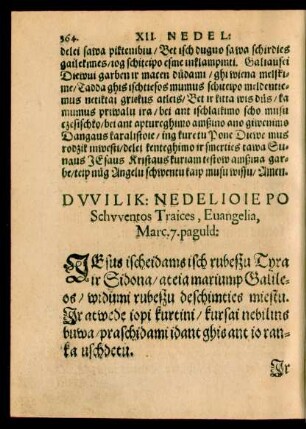 364. XII. NEDEL:
delei sawa piktenibiu / Bet isch dugno sawa schirdies
gailekimes / iog schiteipo esme inklampinti. Galiausei
Diewui garben ir macen důdami / ghi wiena melski-
me / Tadda ghis ischtiesos mumus schiteipo meldentie-
mus netiktai griekus atleis / Bet ir kitta wis důs / ka
mumus priwalu ira / bei ant ischlaikimo scho musu
czeschischko / bei ant aptureghimo amßino ano giwenimo
Dangaus karalistoie / ing kuretu Pone Diewe mus
rodzik nuwesti / delei kenteghimo ir smerties tawa Su-
naus JEsaus Kristaus kuriam testow amßina gar-
be / teip nůg Angelu schwentu kaip musu wissu / Amen.
DVVILIK: NEDELIOIE PO
Schvventos Traices, Euangelia,
Marc. 7. paguld:
JEsus ischeidamis isch rubeßzu Tyra
ir Sidona / ateia mariump Galile-
os / widumi rubeßzu deschimties miestu.
Ir atwede iopi kurtini / kursai nebilins
buwa / praschidami idant ghis ant io ran-
ka uschdetu.
Ir